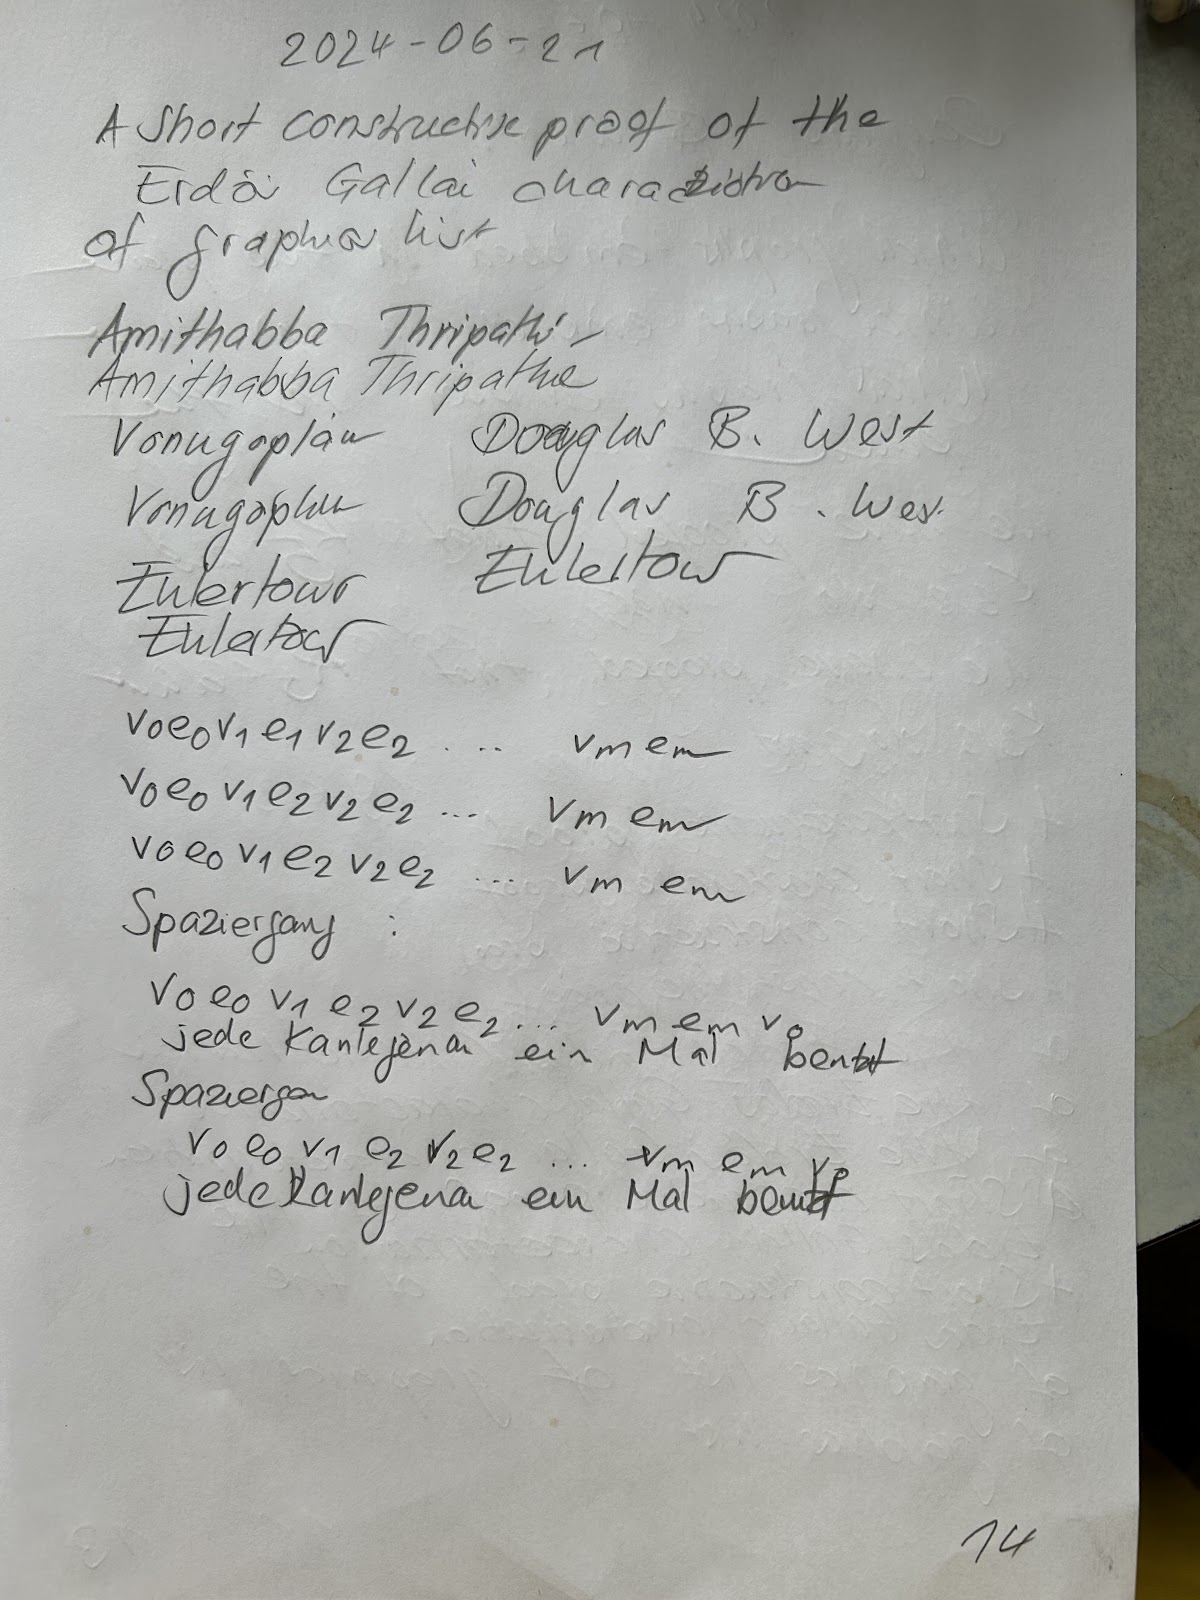 2024-06-21
A Short constructive proof of the
Erdöi Gallai
of list
Amithabba Thripathi
Amithabba Thripathie
Vonugoplan Douglas B. West
Vonugoplan Douglas B. Wes.
Eulertour Eulertour
Eulertour
v0e0v1e1v2e2 ... vm em
v0e0v1e2v2e2 ... vm em
v0e0v1e2v2e2 ... vm em
Spaziergang :
v0e0 v1 e2 v2 e2 ... vm em v0
jede Kantegena ein Mal
v0 e0 v1 e2 v2 e2 ... vm em v0
jede Kantegena ein Mal
14